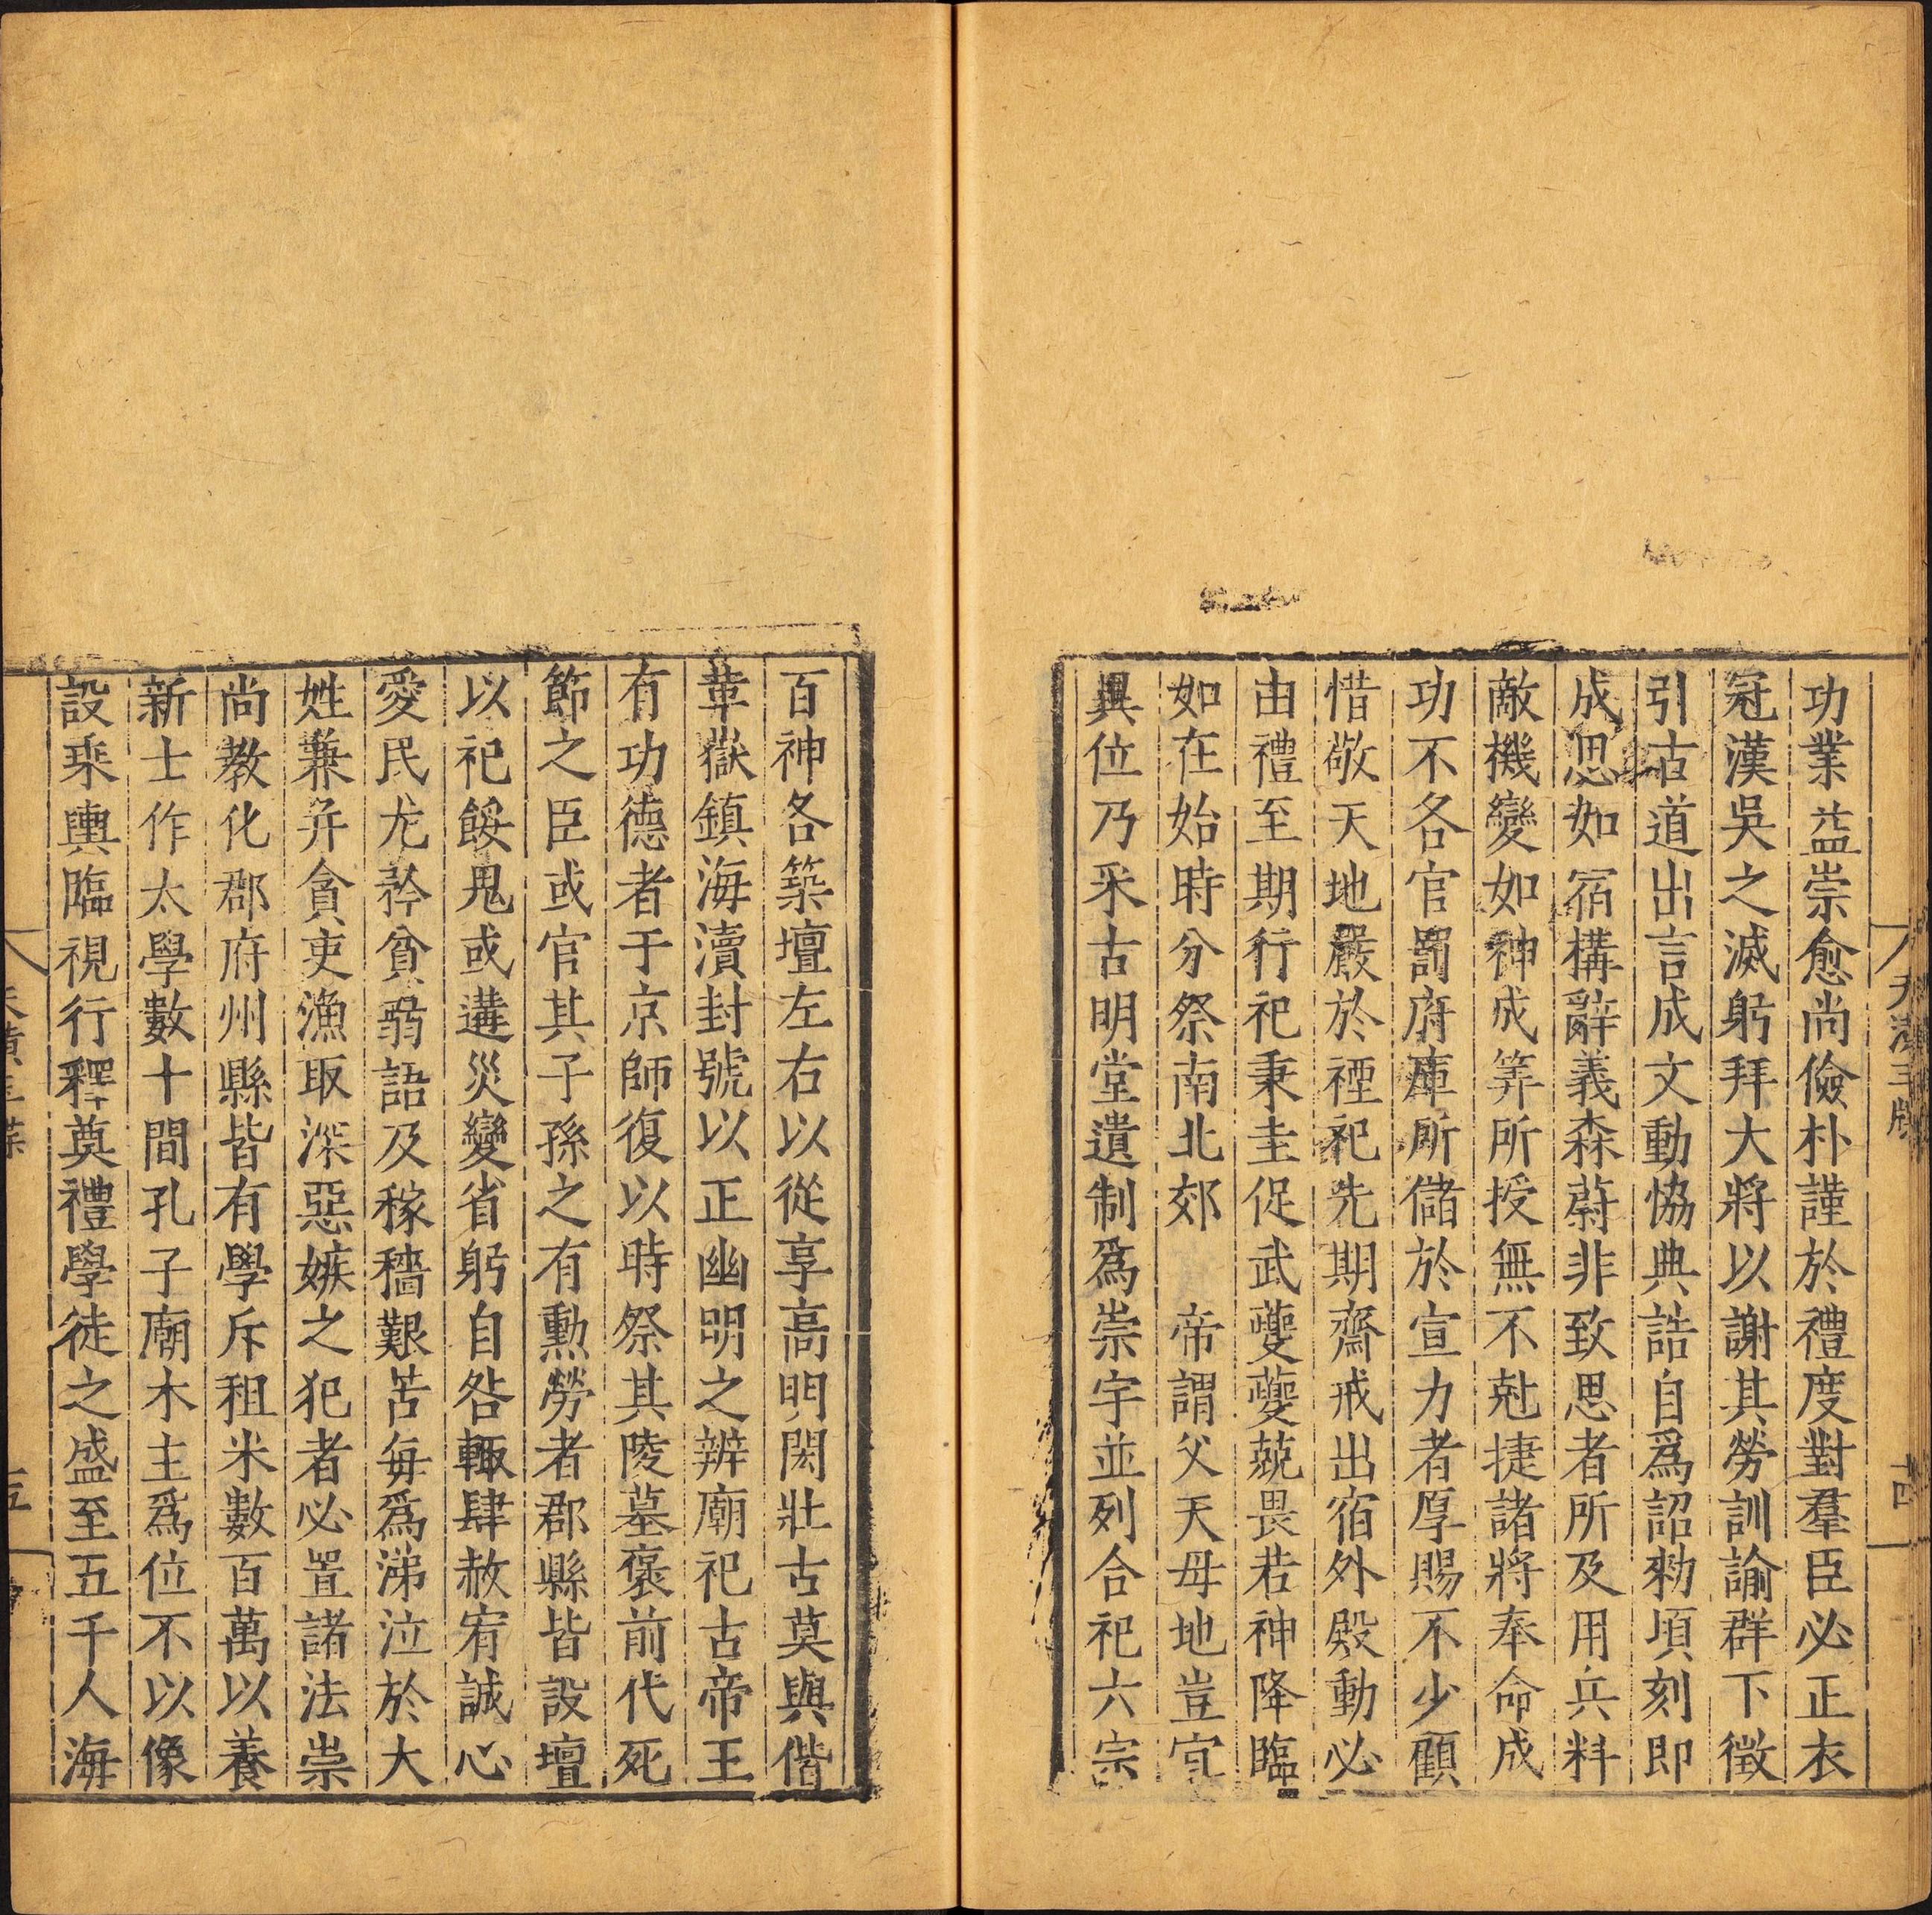 天潢玉牒
十四
功業益崇愈尚儉朴謹於禮度對羣臣必正衣
冠漢吳之滅躬拜大將以謝其勞訓諭群下徵
引古道出言成文動恊典誥自爲詔勑頃刻即
成思如宿構辭義森蔚非致思者所及用兵料
敵機變如神成筭所授無不尅捷諸將奉命成
功不各官罰府庫所儲於宣力者厚賜不少顧
惜敬天地嚴於禋祀先期齋戒出宿外殿動必
由禮至期行祀秉圭促武夔夔兢畏若神降臨
如在始時分祭南北郊 帝謂父天母地豈宜
異位乃采古明堂遺制爲崇宇並列合祀六宗
百神各築壇左右以從享高明閎壯古莫與偕
革嶽鎮海瀆封號以正幽明之辨廟祀古帝王
有功德者于京師復以時祭其陵墓褒前代死
節之臣或官其子孫之有勳勞者郡縣皆設壇
以祀餒鬼或遘災變省躬自咎輒肆赦宥誠心
愛民尤矜貧弱語及稼穡艱苦每爲涕泣於大
姓兼并貪吏漁取深惡嫉之犯者必置諸法崇
尚教化郡府州縣皆有學斥租米數百萬以養
新士作太學數十間孔子廟木主爲位不以像
設乘輿臨視行釋奠禮學徒之盛至五千人海
天潢玉牒
十五